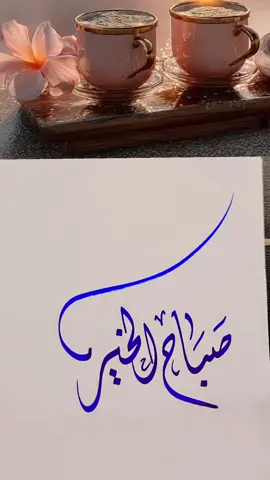 صَبَاح الخير